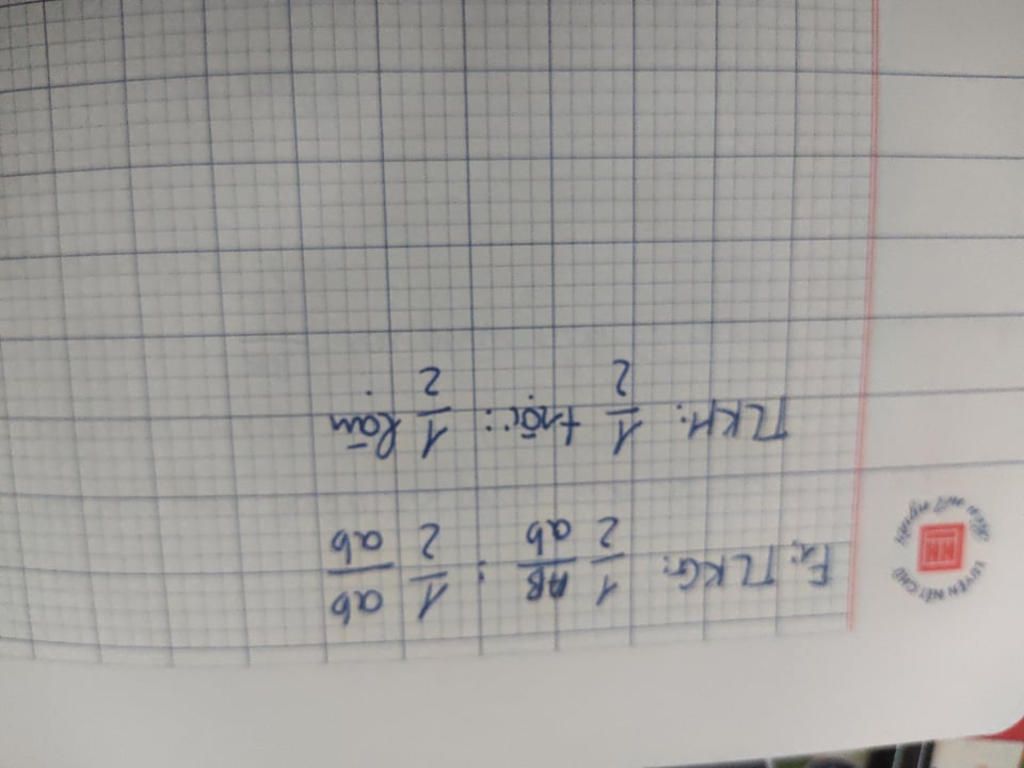 F₂: TLKG: 1/2 AB/ab : 1/2 ab/ab
TLKH: 1/2 trội : 1/2 lặn
LUYỆN NÉT CHỮ